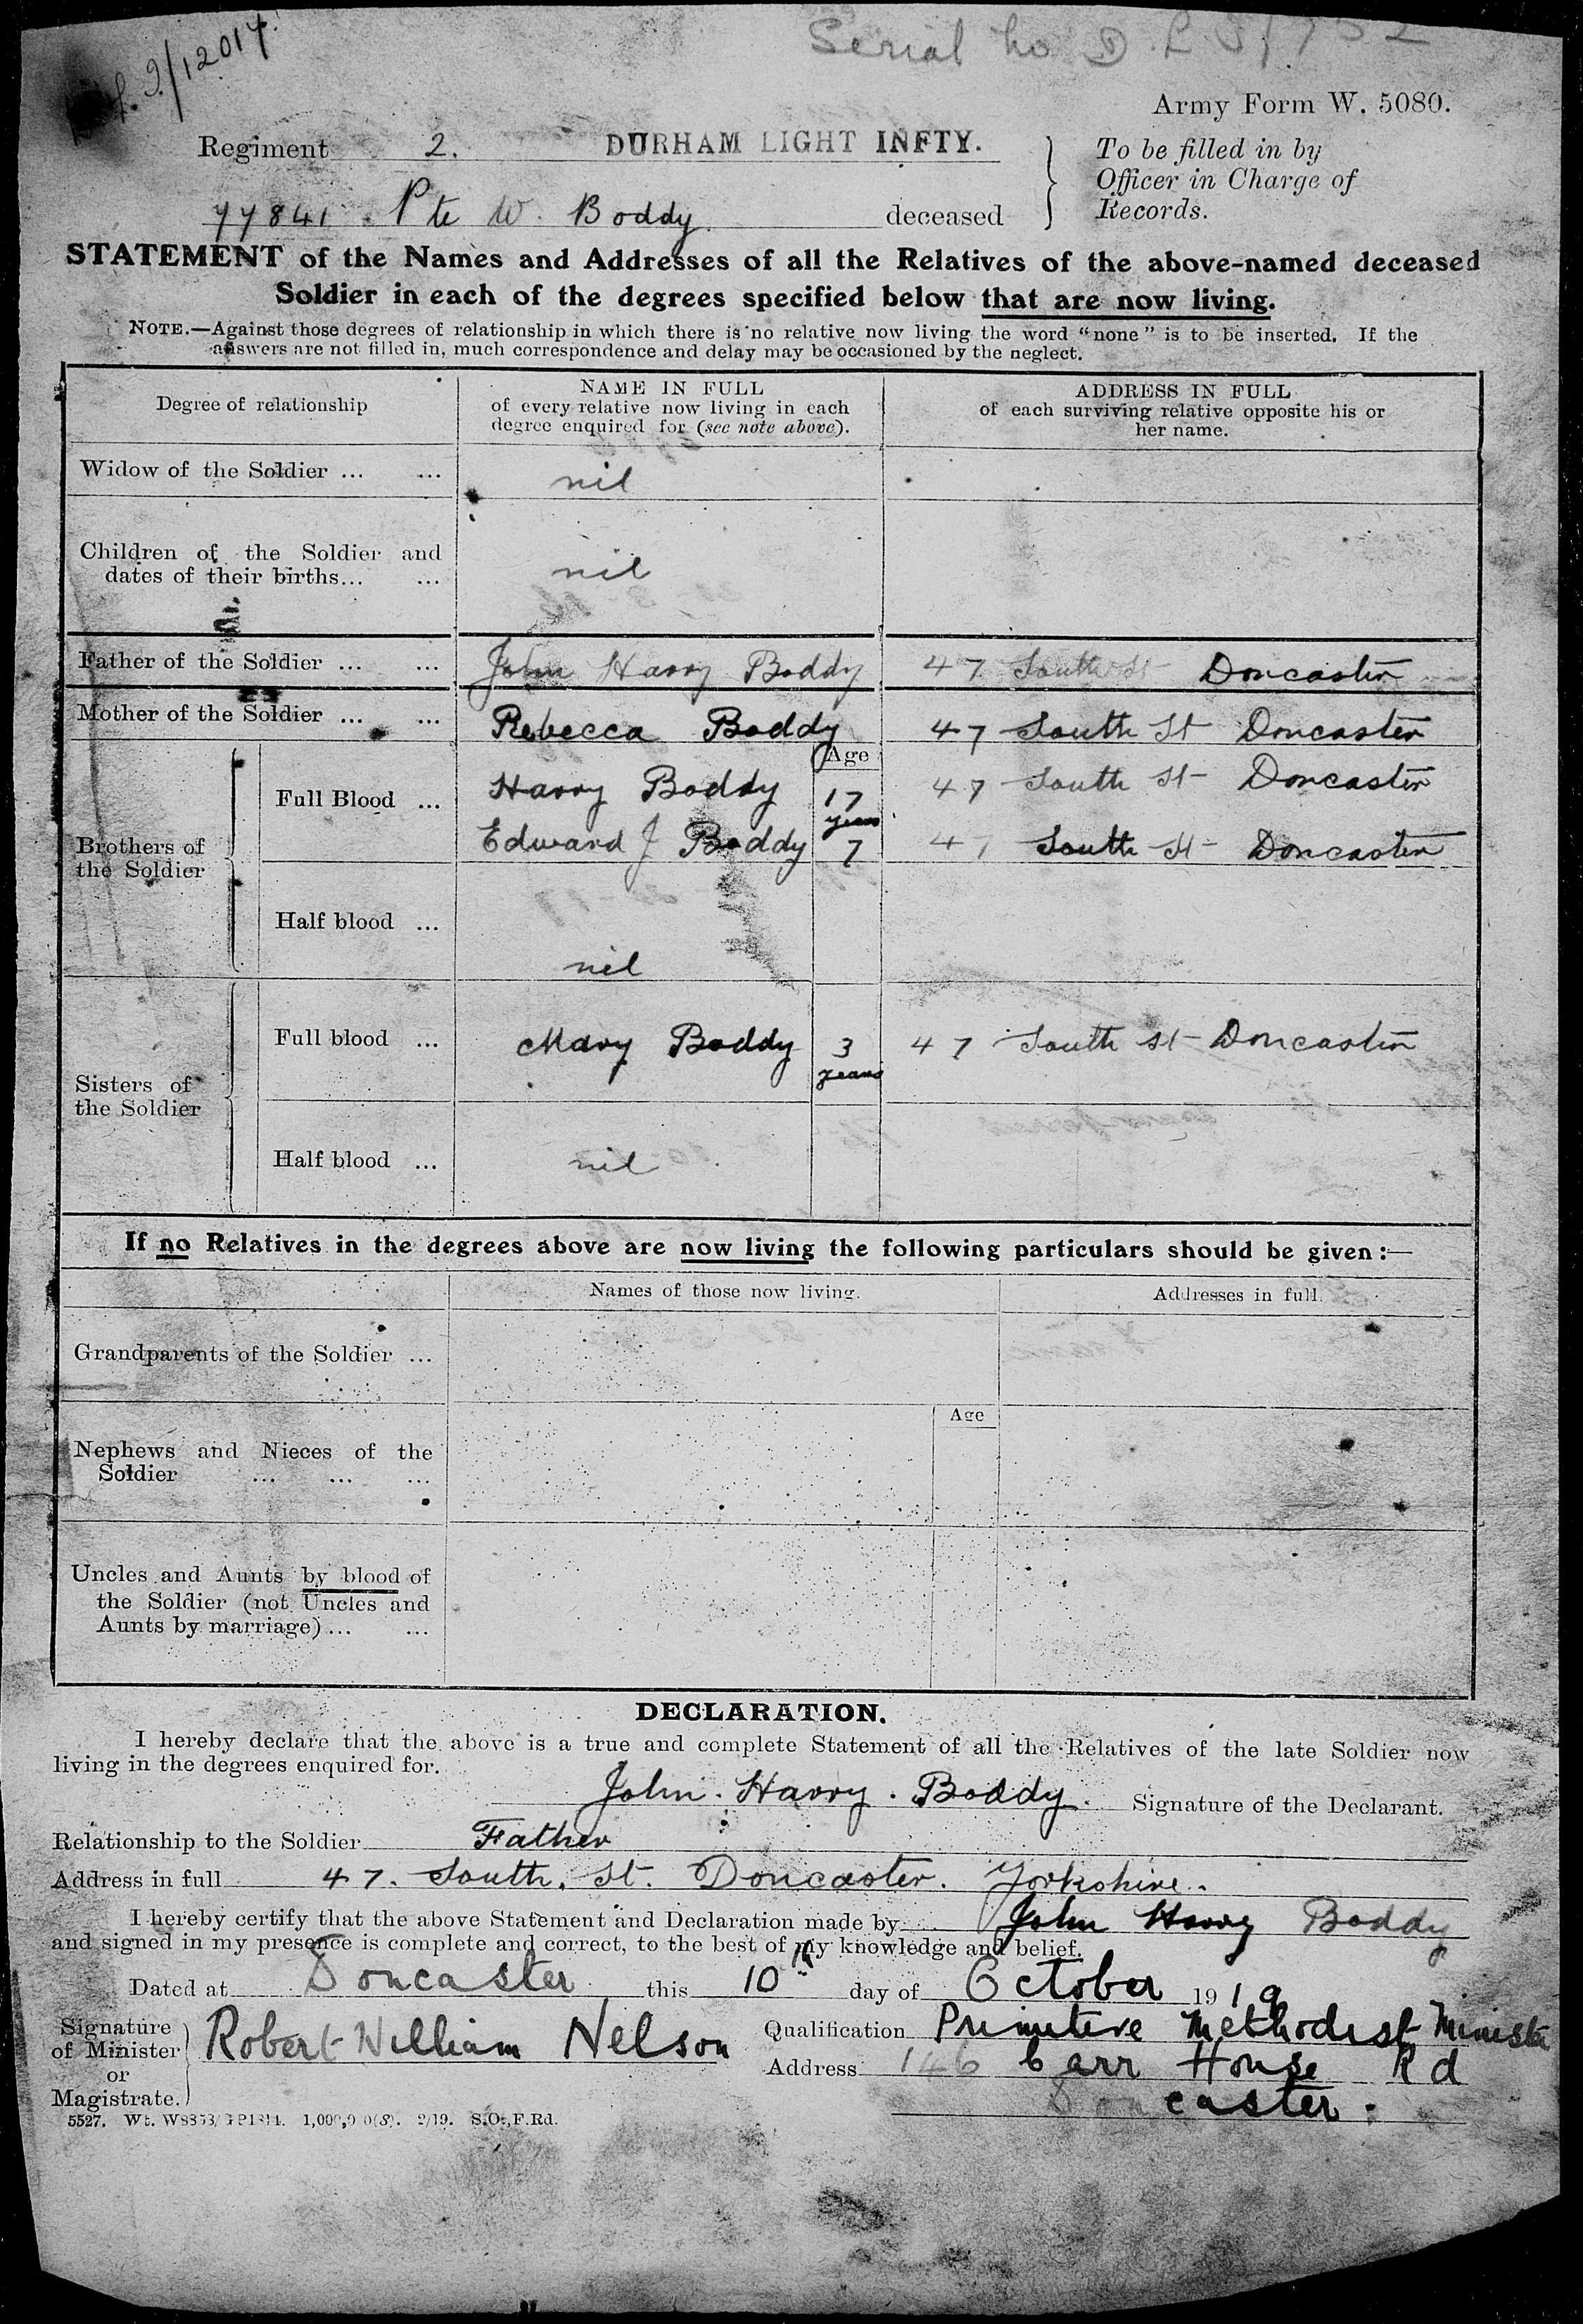 Serial no D.L.S/
9/12014
Army Form W. 5080.
Regiment 2. DURHAM LIGHT INFTY.
77841 Pte W. Boddy deceased
To be filled in by
Officer in Charge of
Records.
STATEMENT of the Names and Addresses of all the Relatives of the above-named deceased
Soldier in each of the degrees specified below that are now living.
NOTE.—Against those degrees of relationship in which there is no relative now living the word "none" is to be inserted. If the
answers are not filled in, much correspondence and delay may be occasioned by the neglect.
Degree of relationship
NAME IN FULL
of every relative now living in each
degree enquired for (see note above).
ADDRESS IN FULL
of each surviving relative opposite his or
her name.
Widow of the Soldier ... ... nil
Children of the Soldier and
dates of their births... ... nil
Father of the Soldier ... ... John Harry Boddy 47 South St Doncaster
Mother of the Soldier ... ... Rebecca Boddy 47 South St Doncaster
Age
Brothers of
the Soldier
Full Blood ... Harry Boddy 17 years 47 South St Doncaster
Edward J Boddy 7 47 South St Doncaster
Half blood ... nil
Sisters of
the Soldier
Full blood ... Mary Boddy 3 years 47 South St Doncaster
Half blood ... nil
If no Relatives in the degrees above are now living the following particulars should be given:—
Names of those now living. Addresses in full.
Grandparents of the Soldier ...
Age
Nephews and Nieces of the
Soldier ... ... ...
Uncles and Aunts by blood of
the Soldier (not Uncles and
Aunts by marriage) ... ...
DECLARATION.
I hereby declare that the above is a true and complete Statement of all the Relatives of the late Soldier now
living in the degrees enquired for.
John. Harry. Boddy. Signature of the Declarant.
Relationship to the Soldier Father
Address in full 47. South. St. Doncaster. Yorkshire.
I hereby certify that the above Statement and Declaration made by John Harry Boddy
and signed in my presence is complete and correct, to the best of my knowledge and belief.
Dated at Doncaster this 10th day of October 1919
Signature
of Minister
or
Magistrate.
Robert William Nelson
Qualification Primitive Methodist Ministe
Address 146 Carr House Rd
Doncaster.
5527. Wt. 2/19.